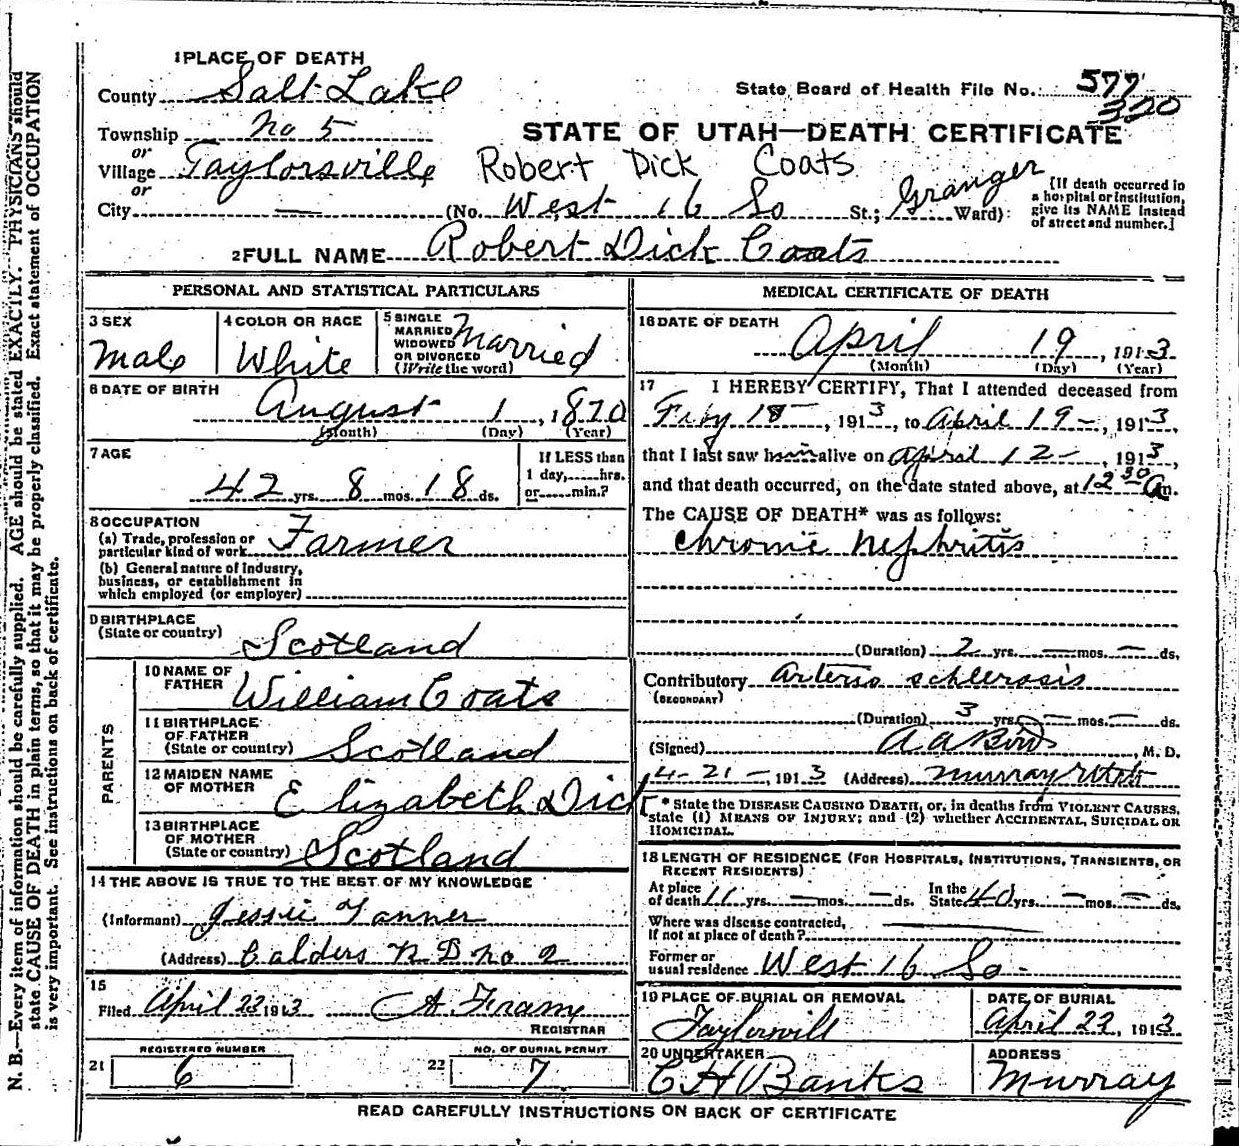 1 PLACE OF DEATH
County Salt Lake
State Board of Health File No. 577
320
Township No 5
or
Village Taylorsville
or
City —
STATE OF UTAH—DEATH CERTIFICATE
Robert Dick Coats
(No. West 16 So St.; Granger Ward)
[If death occurred in
a hospital or institution,
give its NAME instead
of street and number.]
2 FULL NAME Robert Dick Coats
PERSONAL AND STATISTICAL PARTICULARS
3 SEX
Male
4 COLOR OR RACE
White
5 SINGLE
MARRIED
WIDOWED
OR DIVORCED
(Write the word)
Married
6 DATE OF BIRTH
August 1, 1870
(Month) (Day) (Year)
7 AGE
42 yrs. 8 mos. 18 ds.
If LESS than
1 day, hrs.
or min.?
8 OCCUPATION
(a) Trade, profession or
particular kind of work Farmer
(b) General nature of Industry,
business, or establishment in
which employed (or employer)
9 BIRTHPLACE
(State or country) Scotland
PARENTS
10 NAME OF
FATHER William Coats
11 BIRTHPLACE
OF FATHER
(State or country) Scotland
12 MAIDEN NAME
OF MOTHER Elizabeth Dick
13 BIRTHPLACE
OF MOTHER
(State or country) Scotland
14 THE ABOVE IS TRUE TO THE BEST OF MY KNOWLEDGE
(Informant) Jessie Tanner
(Address) Calders R D No 2
15
Filed April 22 1913
REGISTRAR
21 REGISTERED NUMBER
6
22 NO. OF BURIAL PERMIT
7
MEDICAL CERTIFICATE OF DEATH
16 DATE OF DEATH
April 19, 1913
(Month) (Day) (Year)
17 I HEREBY CERTIFY, That I attended deceased from
18, 1913, to April 19, 1913,
that I last saw him alive on April 12, 1913,
and that death occurred, on the date stated above, at 12 30 a m.
The CAUSE OF DEATH* was as follows:
Chronic Nephritis
(Duration) 2 yrs. — mos. — ds.
Contributory Arterio schlerosis
(SECONDARY)
(Duration) 3 yrs. — mos. — ds.
(Signed) A A Bird, M. D.
4-21-, 1913 (Address) Murray Utah
[* State the DISEASE CAUSING DEATH, or, in deaths from VIOLENT CAUSES,
state (1) MEANS OF INJURY; and (2) whether ACCIDENTAL, SUICIDAL OR
HOMICIDAL.
18 LENGTH OF RESIDENCE (FOR HOSPITALS, INSTITUTIONS, TRANSIENTS, OR
RECENT RESIDENTS)
At place
of death 11 yrs. — mos. — ds.
In the
State 40 yrs. — mos. — ds.
Where was disease contracted,
If not at place of death?
Former or
usual residence West 16 So
19 PLACE OF BURIAL OR REMOVAL
Taylorsvill
DATE OF BURIAL
April 22, 1913
20 UNDERTAKER
C H Banks
ADDRESS
Murray
READ CAREFULLY INSTRUCTIONS ON BACK OF CERTIFICATE
N. B.—Every item of information should be carefully supplied. AGE should be stated EXACTLY. PHYSICIANS should
state CAUSE OF DEATH in plain terms, so that it may be properly classified. Exact statement of OCCUPATION
is very important. See instructions on back of certificate.